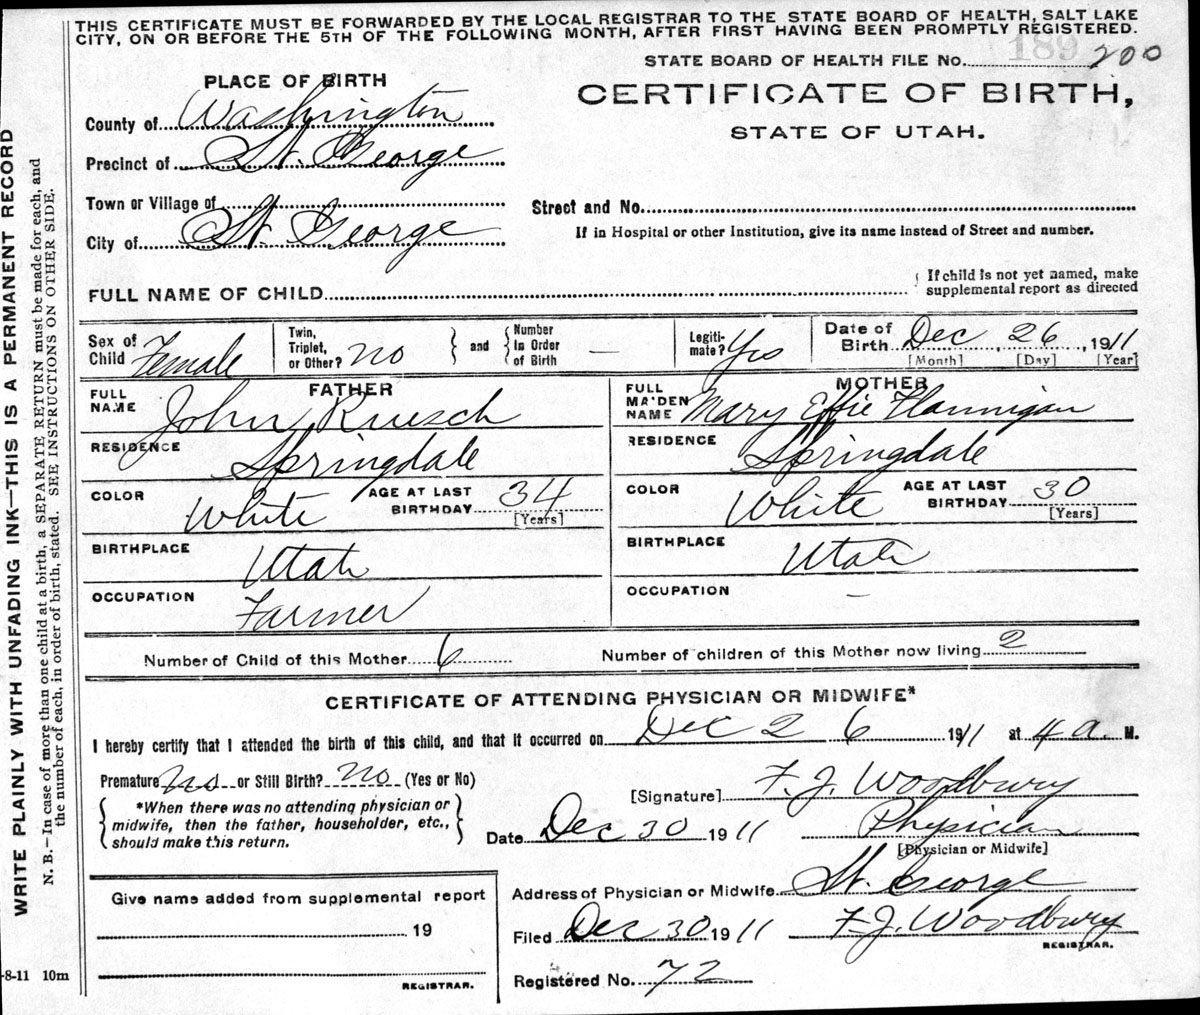 THIS CERTIFICATE MUST BE FORWARDED BY THE LOCAL REGISTRAR TO THE STATE BOARD OF HEALTH, SALT LAKE
CITY, ON OR BEFORE THE 5TH OF THE FOLLOWING MONTH, AFTER FIRST HAVING BEEN PROMPTLY REGISTERED.
189
STATE BOARD OF HEALTH FILE No. 200
PLACE OF BIRTH
CERTIFICATE OF BIRTH,
STATE OF UTAH.
County of Washington
Precinct of St. George
Town or Village of
Street and No.
City of St. George
If in Hospital or other Institution, give its name instead of Street and number.
FULL NAME OF CHILD
If child is not yet named, make
supplemental report as directed
Sex of Child Female
Twin, Triplet, or Other? no
and
Number In Order of Birth —
Legiti- mate? Yes
Date of Birth Dec 26, 1911
[Month] [Day] [Year]
FATHER
FULL NAME John Ruesch
RESIDENCE Springdale
COLOR White
AGE AT LAST BIRTHDAY 34
[Years]
BIRTHPLACE Utah
OCCUPATION Farmer
MOTHER
FULL MAIDEN NAME Mary Effie Flannigan
RESIDENCE Springdale
COLOR White
AGE AT LAST BIRTHDAY 30
[Years]
BIRTHPLACE Utah
OCCUPATION —
Number of Child of this Mother 6
Number of children of this Mother now living 2
CERTIFICATE OF ATTENDING PHYSICIAN OR MIDWIFE*
I hereby certify that I attended the birth of this child, and that it occurred on Dec 26 1911 at 4 a. M.
Premature no or Still Birth? no (Yes or No)
*When there was no attending physician or
midwife, then the father, householder, etc.,
should make this return.
[Signature] F. J. Woodbury
Date Dec 30 1911 Physician
[Physician or Midwife]
Address of Physician or Midwife St. George
Filed Dec 30 1911 F. J. Woodbury
REGISTRAR.
Registered No. 72
Give name added from supplemental report
19
REGISTRAR.
-8-11 10m
WRITE PLAINLY WITH UNFADING INK—THIS IS A PERMANENT RECORD
N. B.—In case of more than one child at a birth, a SEPARATE RETURN must be made for each, and
the number of each, in order of birth, stated. SEE INSTRUCTIONS ON OTHER SIDE.